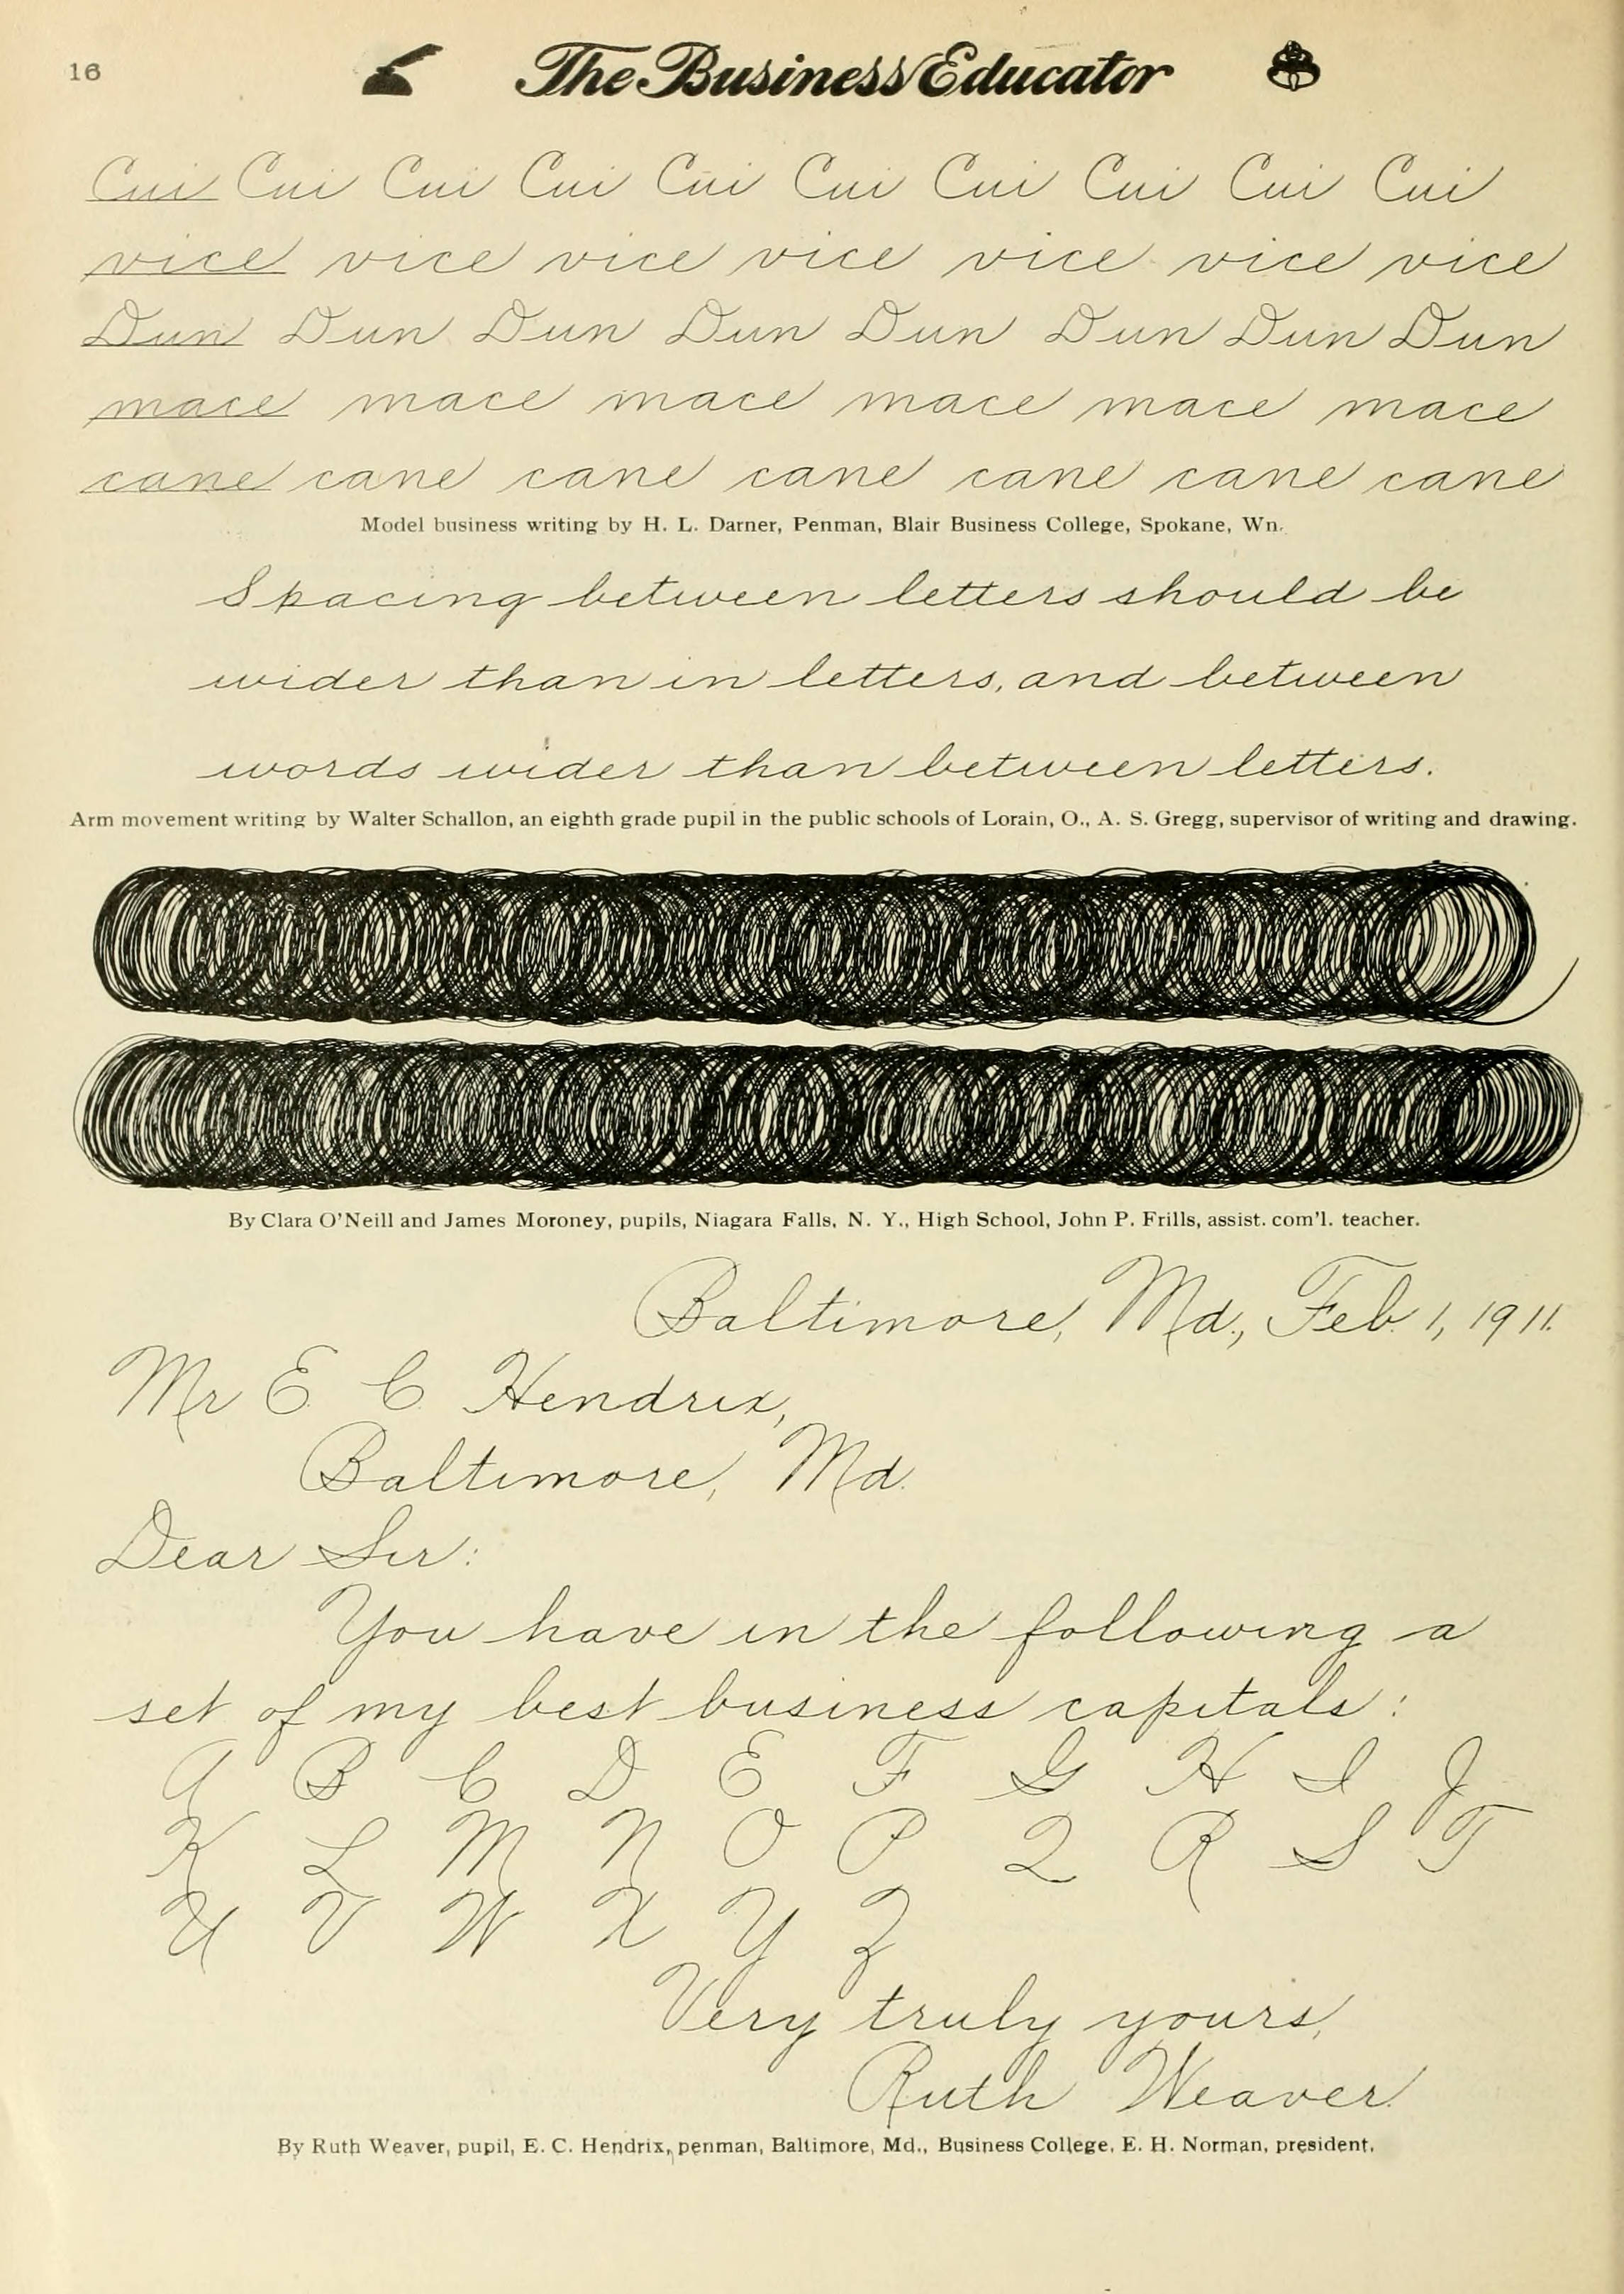 16
The Business Educator
Cui Cui Cui Cui Cui Cui Cui Cui Cui Cui
vice vice vice vice vice vice vice
Dun Dun Dun Dun Dun Dun Dun Dun
mace mace mace mace mace mace
cane cane cane cane cane cane cane
Model business writing by H. L. Darner, Penman, Blair Business College, Spokane, Wn.
Spacing between letters should be
wider than in letters, and between
words wider than between letters.
Arm movement writing by Walter Schallon, an eighth grade pupil in the public schools of Lorain, O., A. S. Gregg, supervisor of writing and drawing.
By Clara O'Neill and James Moroney, pupils, Niagara Falls, N. Y., High School, John P. Frills, assist. com'l. teacher.
Baltimore, Md., Feb. 1, 1911.
Mr E. C. Hendrix,
Baltimore, Md.
Dear Sir:
You have in the following a
set of my best business capitals:
A B C D E F G H I J
K L M N O P Q R S T
U V W X Y Z
Very truly yours,
Ruth Weaver.
By Ruth Weaver, pupil, E. C. Hendrix, penman, Baltimore, Md., Business College, E. H. Norman, president.